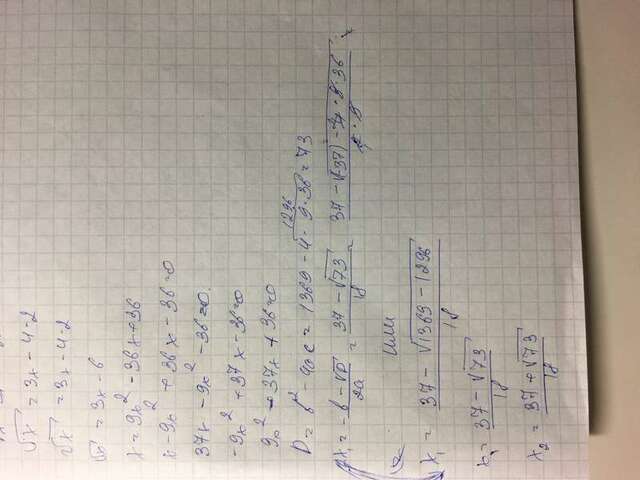 √x = 3x - 4 - 2
√x = 3x - 4 - 2
√x = 3x - 6
x = 9x² - 36x + 36
x - 9x² + 36x - 36 = 0
37x - 9x² - 36 = 0.
-9x² + 37x - 36 = 0
9x² - 37x + 36 = 0
1296
D = b² - 4ac = 1369 - 4 · 9 · 36 = 73
x₁ = -b - √D / 2a = 37 - √73 / 18 = 37 - √(-37) - 4 · 9 · 36 / 2 · 9
или
x₁ = 37 - √1369 - 1296 / 18
x₁ = 37 - √73 / 18
x₂ = 37 + √73 / 18